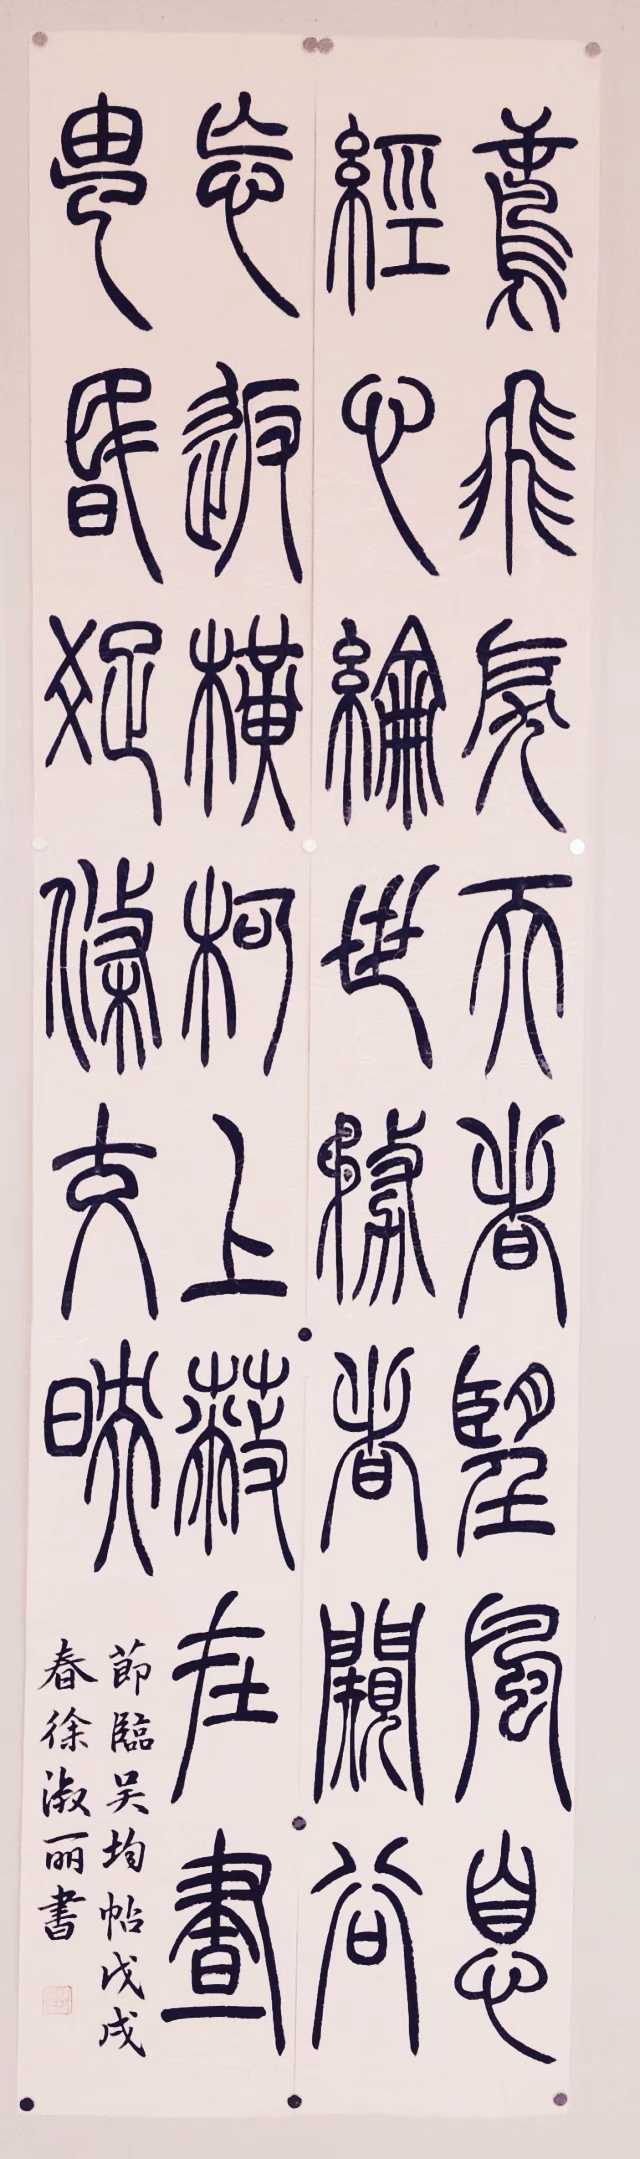 鳶飛戾天者望風息
經心綸世務者闚谷
忘返橫柯上蔽在晝
昬疏條交映
節臨吴均帖戊戌
春徐淑丽書